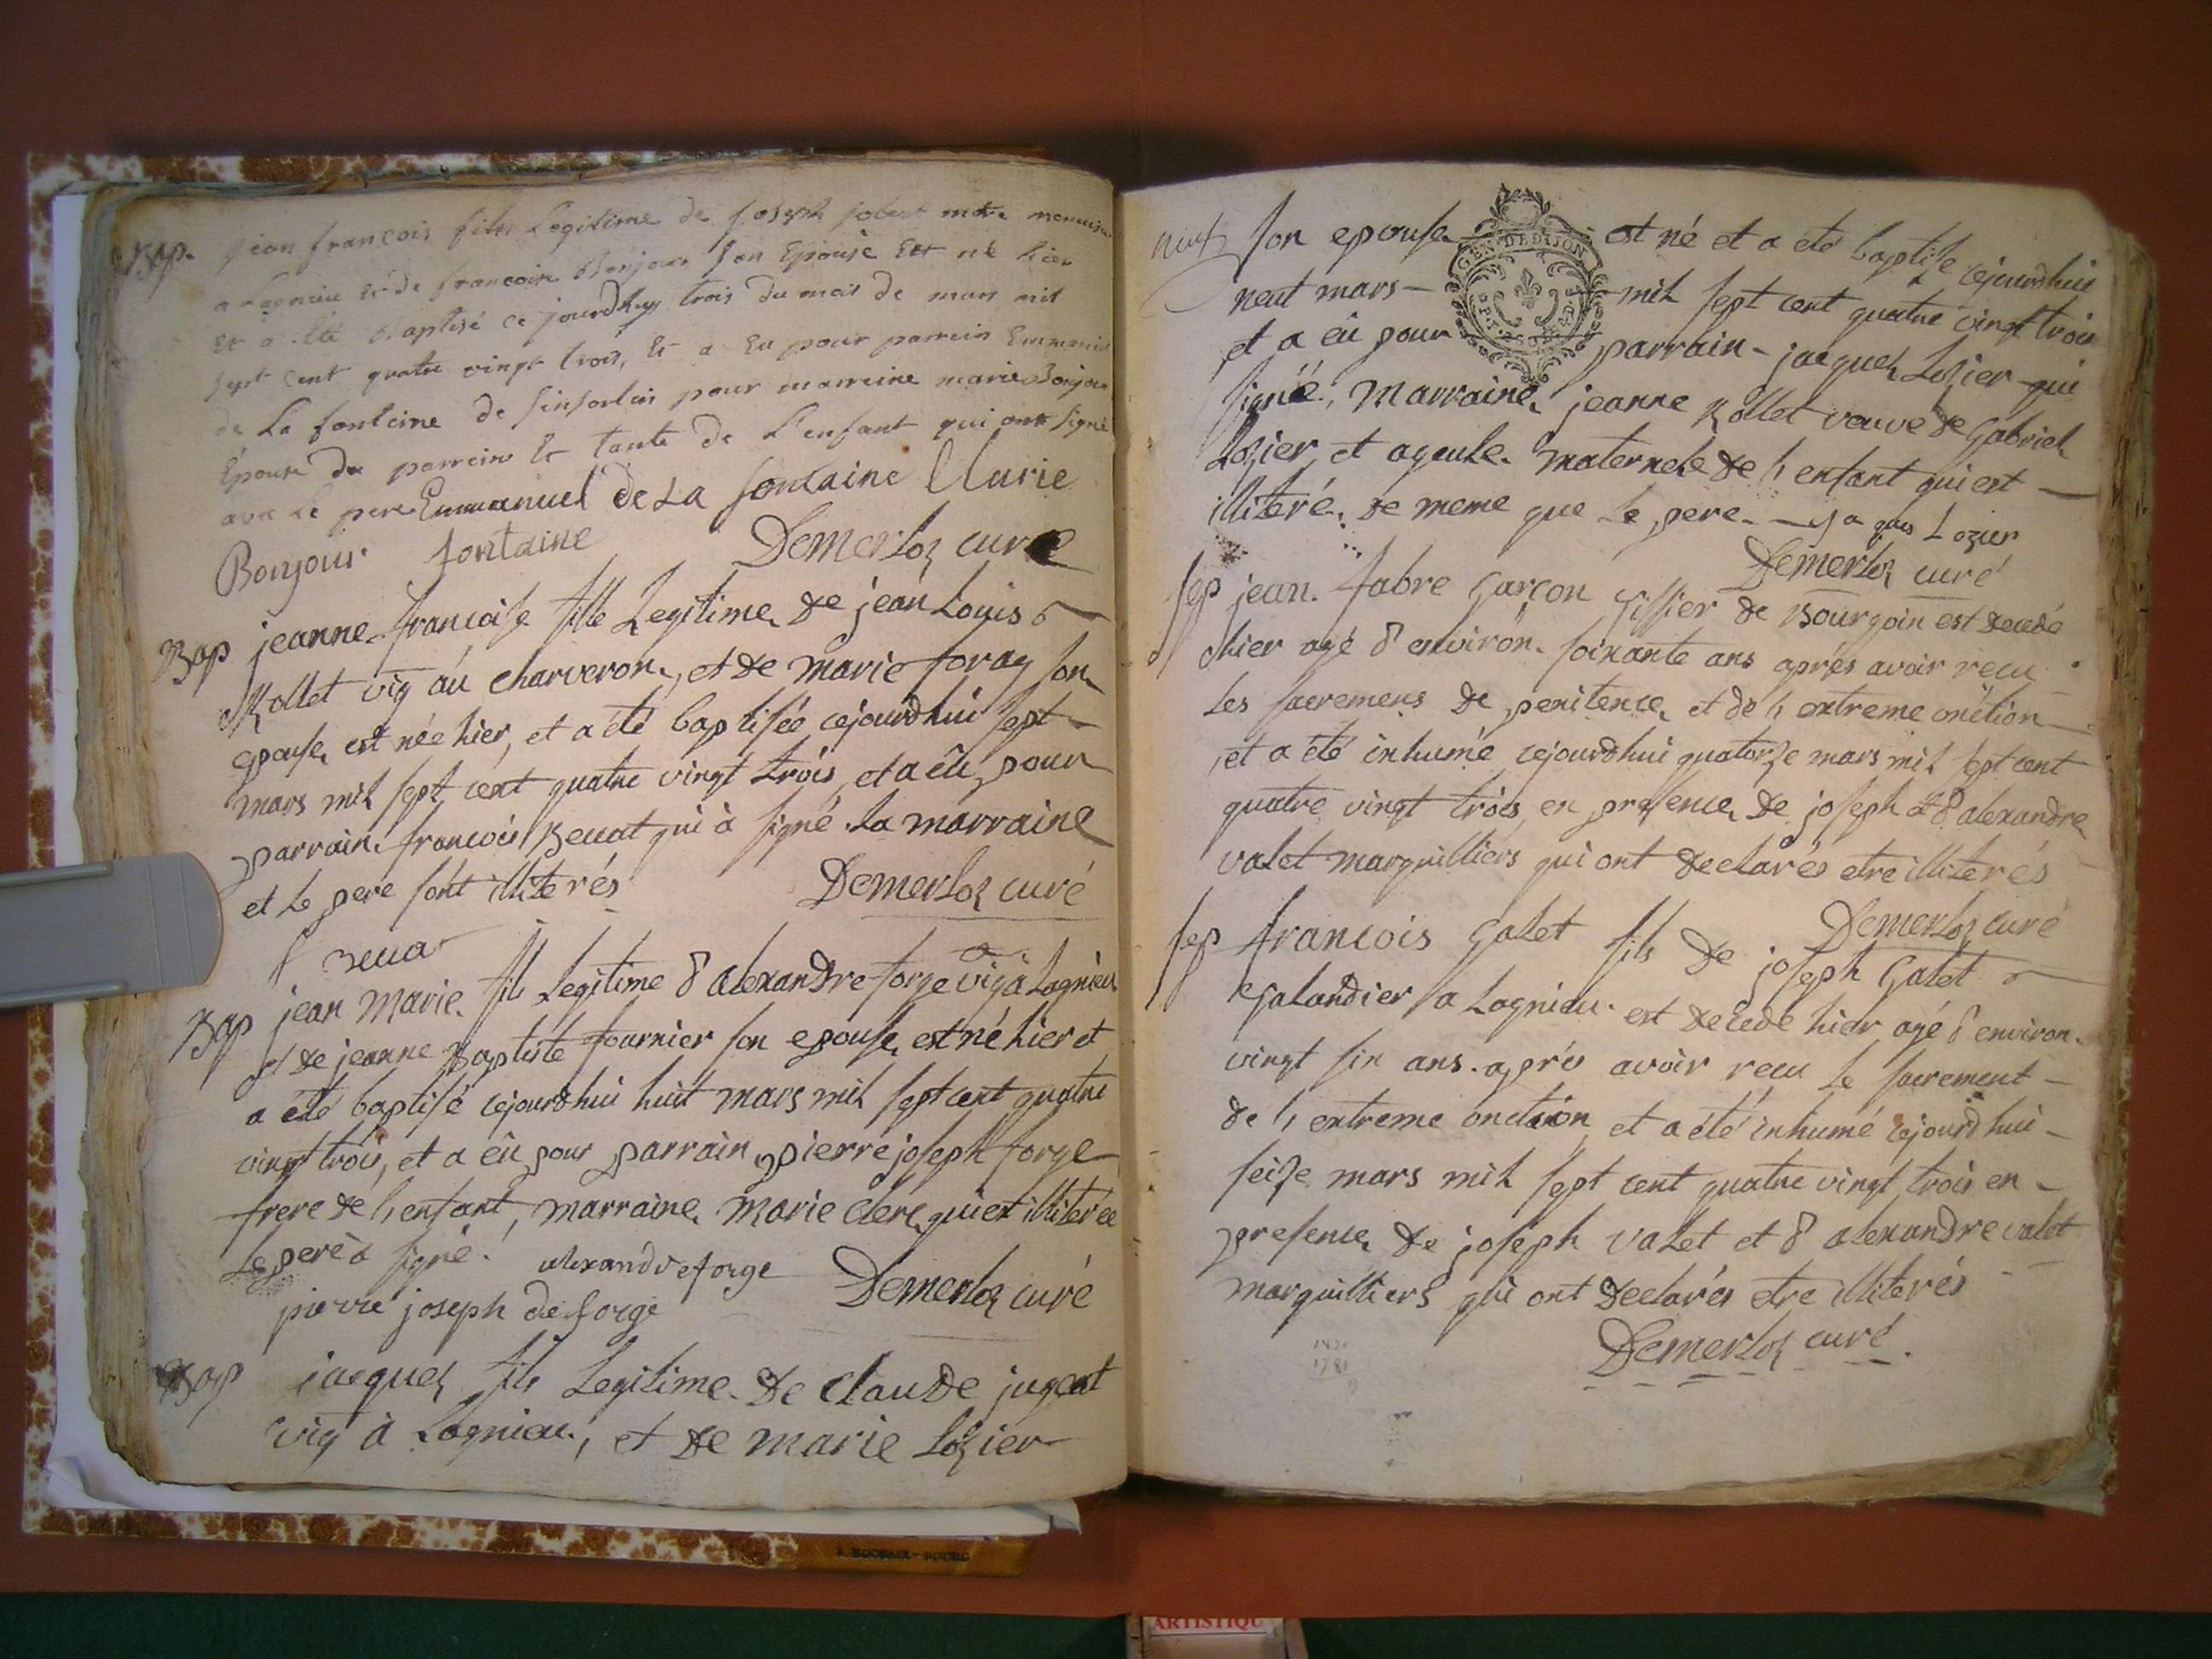 Bap. jean francois fils Legitime de joseph jobert mtre menuisier
a Lagnieu et de francoise Bonjour son Epouse Est né hier
Et a été Baptisé ce jourdhuy trois du mois de mars mil
sept cent quatre vingt trois, Et a Eu pour parrein Emmanuel
de La fonteine de pour marreine marie Bonjour
Epouse du parrein Et tante de L'enfant qui ont signé
avec Le pere Emmanuel de La fontaine Marie
Bonjour fontaine Demerloz curé
Bap jeanne francoise fille Legitime de jean Louis
Rollet vig au charveron, et de marie foray son
epouse, est née hier, et a été baptisée cejourdhui sept
mars mil sept cent quatre vingt trois, et a eü pour
parrain francois Beuat qui à signé La marraine
et Le pere sont illiterés Demerloz curé
f Beuat
Bap jean Marie fils Legitime d'alexandre forge vig à Lagnieu
et de jeanne Baptiste fournier son epouse, est né hier et
a été baptisé cejourdhui huit mars mil sept cent quatre
vingt trois, et a eü pour parrain pierre joseph forge
frere de l'enfant, marraine marie clerc qui est illiterée
Le pere a signé. alexandre forge Demerloz curé
pierre joseph de forge
Bap jacques fils Legitime de claude jugeat
vig à Lagnieu, et de marie Lozier
neuf son epouse est né et a été baptisé cejourdhui
neuf mars mil sept cent quatre vingt trois
et a eü pour parrain jacques Lozier qui
signé, Marraine jeanne Rollet veuve de Gabriel
Lozier et ayeule maternele de l'enfant qui est
illiteré, de meme que Le pere. jaques Lozier
Demerloz curé
GEN. DE DIJON
Sep jean fabre garçon de Bourgoin est decedé
hier agé d'environ soixante ans aprés avoir recu
Les sacremens de penitence, et de l'extreme onction
et a été inhumé cejourdhui quatorze mars mil sept cent
quatre vingt trois, en presence de joseph et d'alexandre
valet marguilliers qui ont declarés etre illiterés
Demerloz curé
Sep francois Galet fils de joseph Galet
Galandier a Lagnieu est decedé hier agé d'environ
vingt six ans aprés avoir recu Le sacrement
de l'extreme onction, et a été inhumé cejourdhui
seize mars mil sept cent quatre vingt trois en
presence de joseph valet et d'alexandre valet
marguilliers qui ont declarés etre illiterés
Demerloz curé.
1781
ARTISTIQU